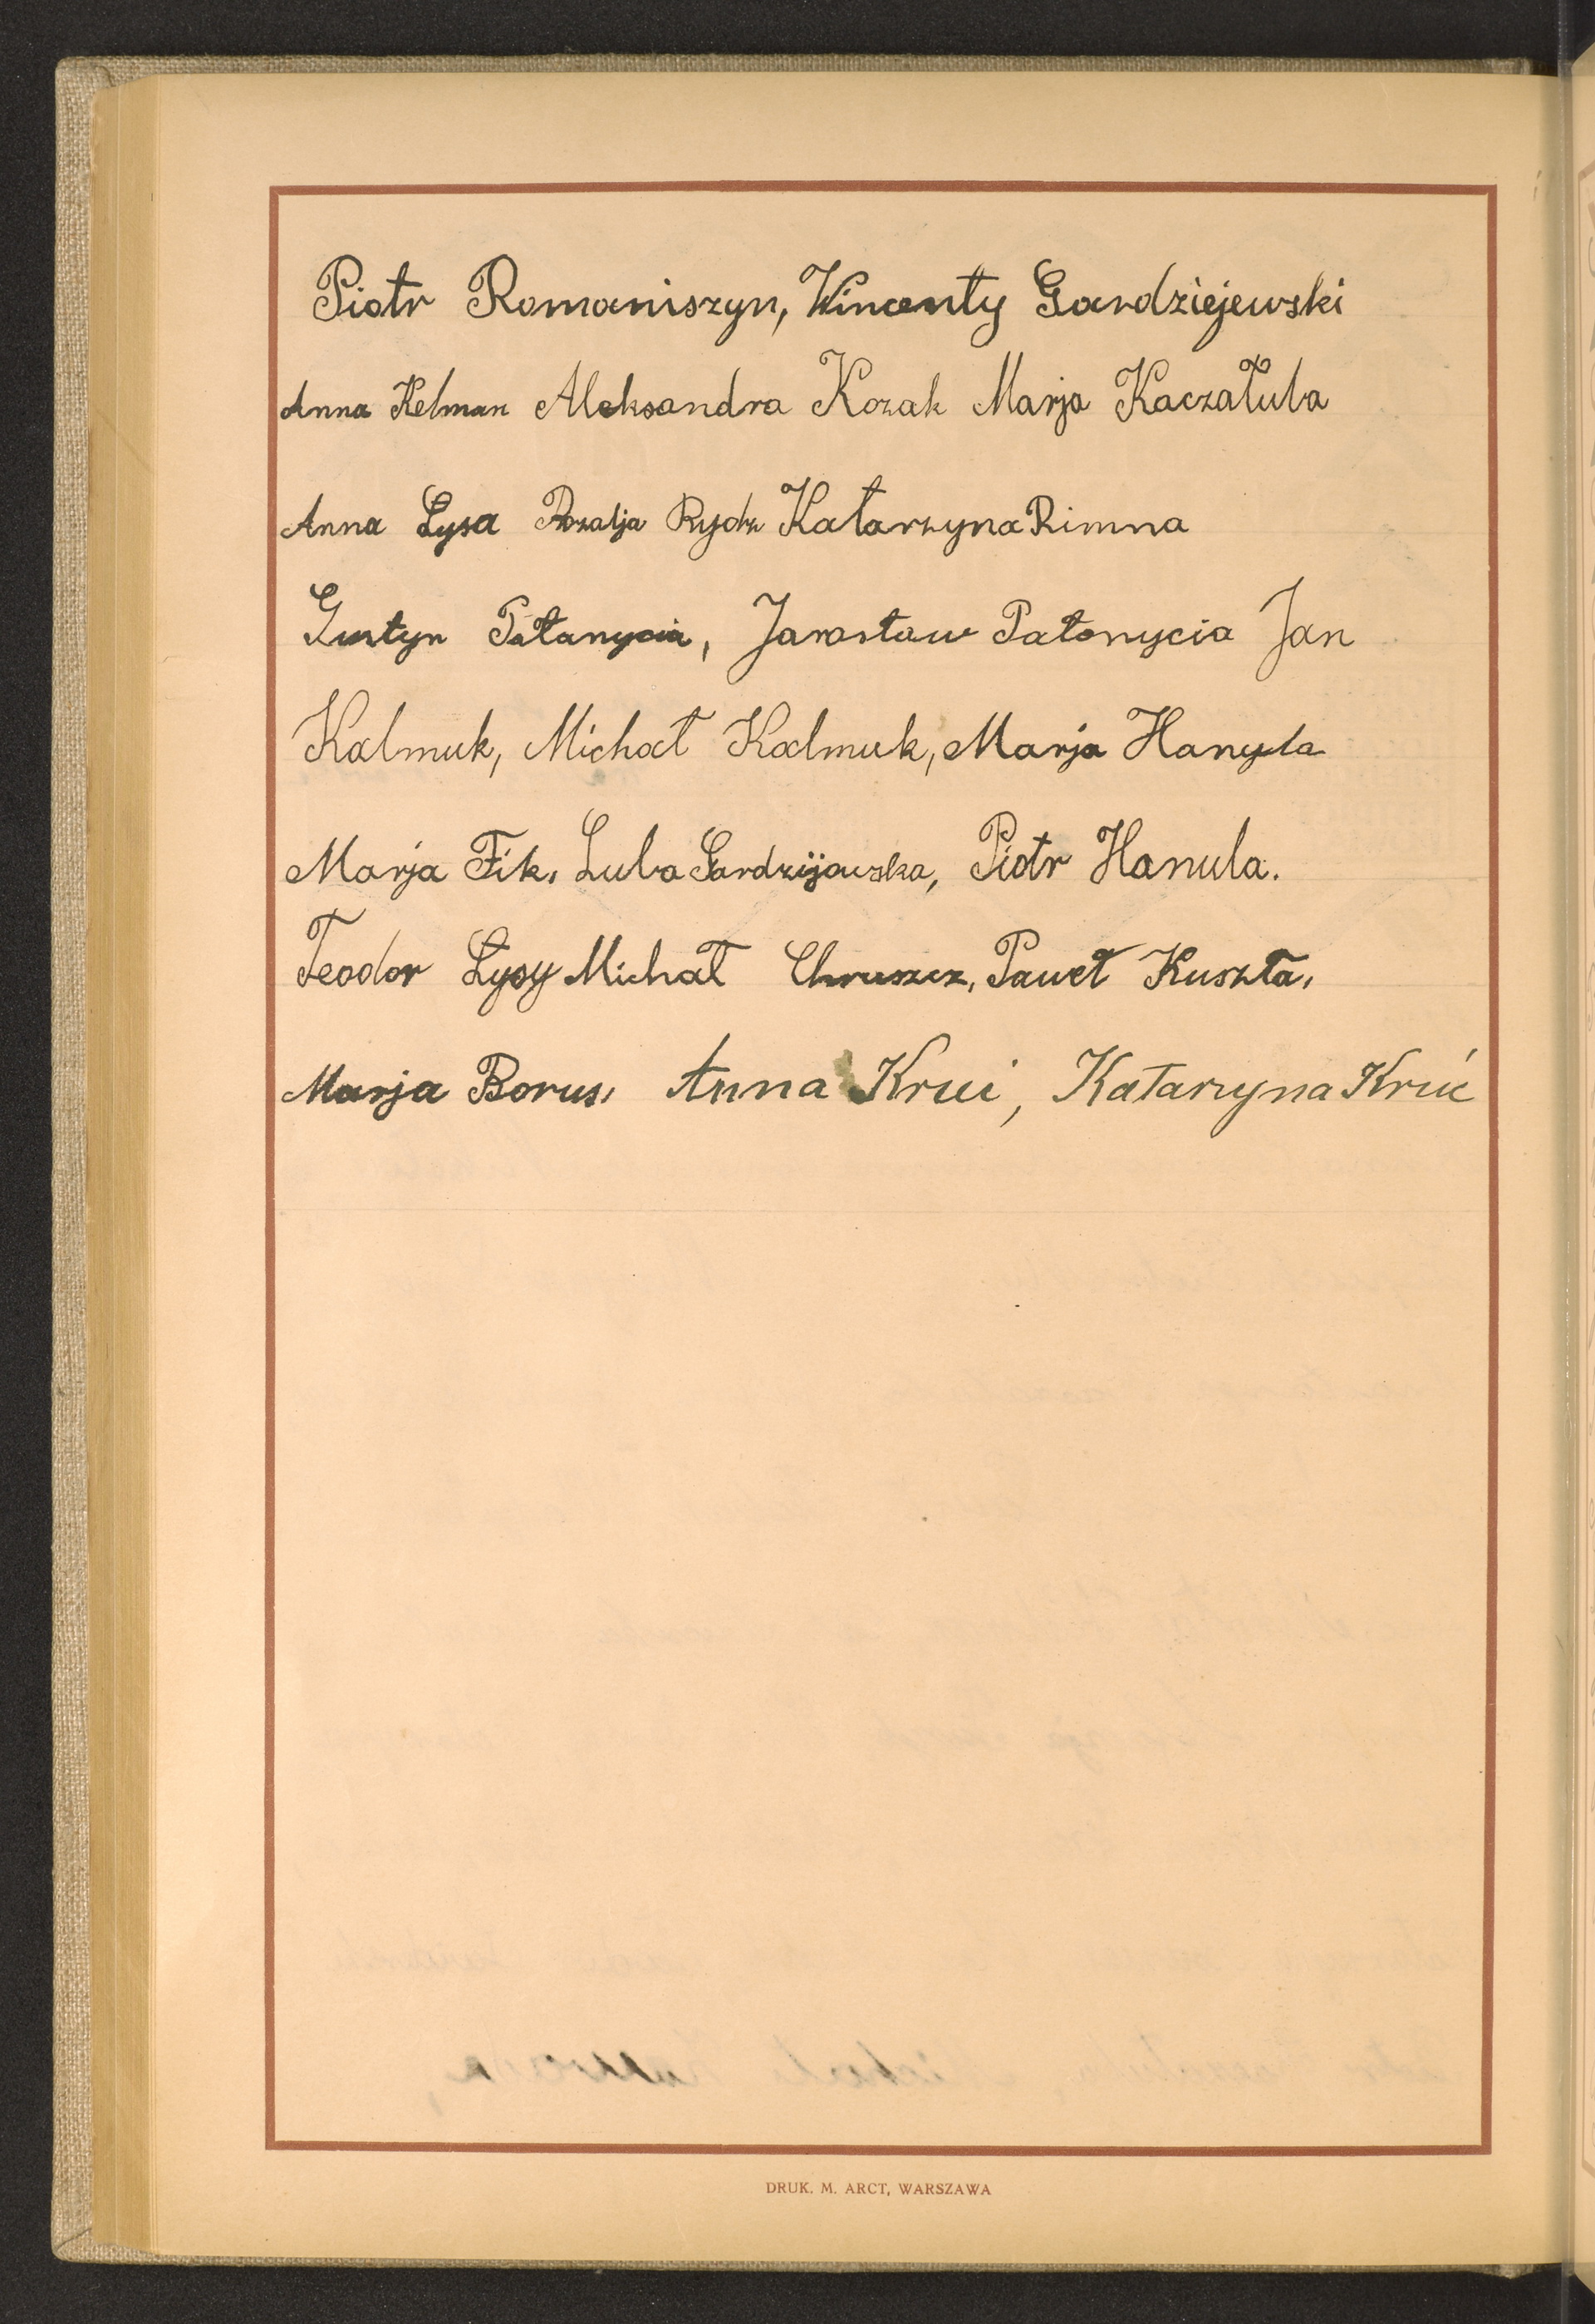 Piotr Romaniszyn, Wincenty Gardziejewski
Anna Kelman Aleksandra Kozak Marja Kaczałuba
Anna Łysa Rozalja Rydz Katarzyna Rimna
Justyn Patanycia, Jarosław Patonycia Jan
Kalmuk, Michał Kalmuk, Marja Hanyła
Marja Fik, Luba Gardzijewska, Piotr Hanula.
Teodor Łysy Michał Chruszcz, Paweł Kuszła,
Marja Borus, Anna Kruć, Katarzyna Kruć
DRUK. M. ARCT, WARSZAWA